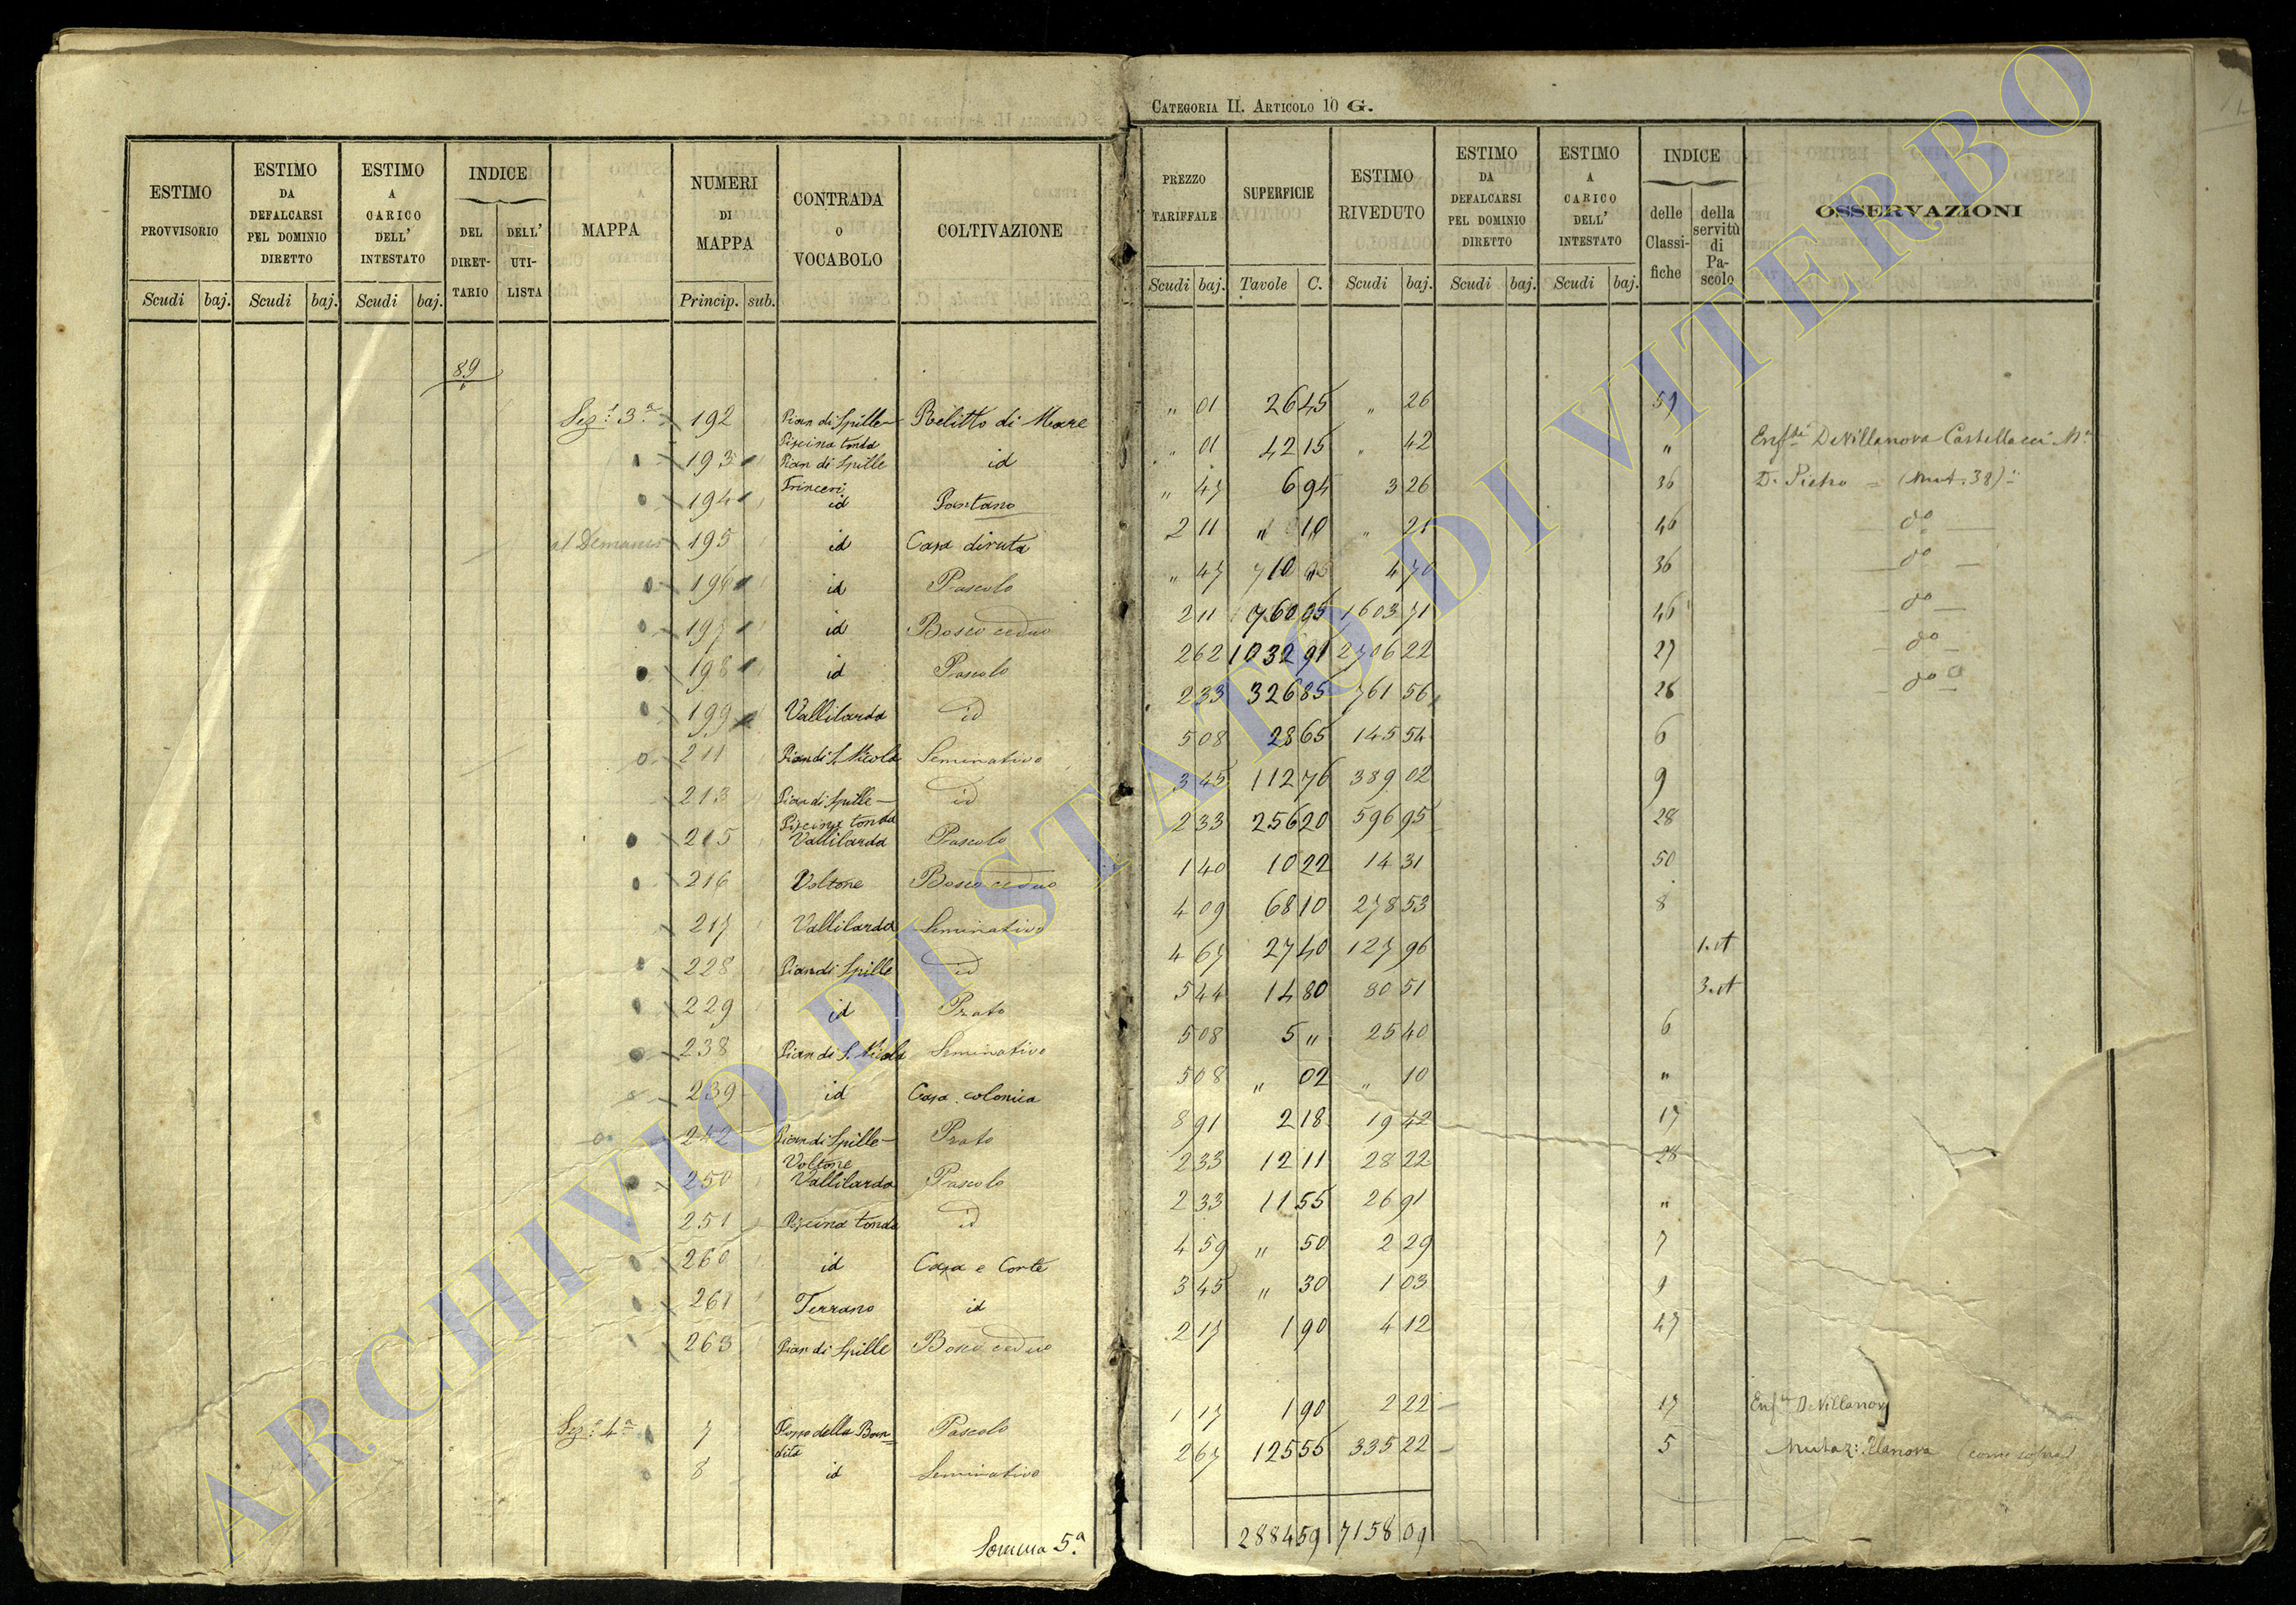 CATEGORIA II. ARTICOLO 10 G.
ESTIMO PROVVISORIO | ESTIMO DA DEFALCARSI PEL DOMINIO DIRETTO | ESTIMO A CARICO DELL' INTESTATO | INDICE DEL DIRETTARIO | DELL' UTILISTA | MAPPA | NUMERI DI MAPPA | CONTRADA O VOCABOLO | COLTIVAZIONE | PREZZO TARIFFALE | SUPERFICIE | ESTIMO RIVEDUTO | ESTIMO DA DEFALCARSI PEL DOMINIO DIRETTO | ESTIMO A CARICO DELL' INTESTATO | INDICE delle Classifiche | della servitù di Pascolo | OSSERVAZIONI
Scudi baj. Scudi baj. Scudi baj. Princip. sub. Scudi baj. Tavole C. Scudi baj. Scudi baj. Scudi baj.
89
Sez. 3a 192 Pian di Spille Piscina tonda Relitto di Mare " 01 26 45 " 26 51
193 Pian di Spille Trinceri id " 01 42 15 " 42 " Enfti De Villanova Castellacci Mn
194 id Pantano " 47 6 94 3 26 36 D. Pietro = (Mut. 38)
195 id Casa diruta 2 11 " 10 " 21 46 do
196 id Pascolo " 47 10 4 70 36 do
197 id Bosco ceduo 2 11 760 05 1603 71 46 do
198 id Pascolo 2 62 1032 91 2706 22 27 do
199 Vallilarda id 2 33 326 85 761 56 26 do
211 Pian di S. Nicola Seminativo 5 08 28 65 145 54 6
213 Pian di Spille Piscina tonda id 3 45 112 76 389 02 9
215 Vallilarda Pascolo 2 33 256 20 596 95 28
216 Voltone Bosco ceduo 1 40 10 22 14 31 50
217 Vallilarda Seminativo 4 09 68 10 278 53 8
228 Pian di Spille id 4 67 27 40 127 96 1. st
229 id Prato 5 44 14 80 80 51 3. st
238 Pian di S. Nicola Seminativo 5 08 5 " 25 40 6
239 id Casa colonica 5 08 " 02 " 10 "
242 Pian di Spille Voltone Prato 8 91 2 18 19 42 17
250 Vallilarda Pascolo 2 33 12 11 28 22 28
251 Piscina tonda id 2 33 11 55 26 91 "
260 id Casa e Corte 4 59 " 50 2 29 7
261 Terrano id 3 45 " 30 1 03 9
263 Pian di Spille Bosco ceduo 2 17 1 90 4 12 47
Sez. 4a 7 Fosso della Bandita Pascolo 1 17 1 90 2 22 17 De Villanova
8 id Seminativo 2 67 125 55 335 22 5 (come sopra)
Somma 5a 2884 59 7158 09
ARCHIVIO DI STATO DI VITERBO